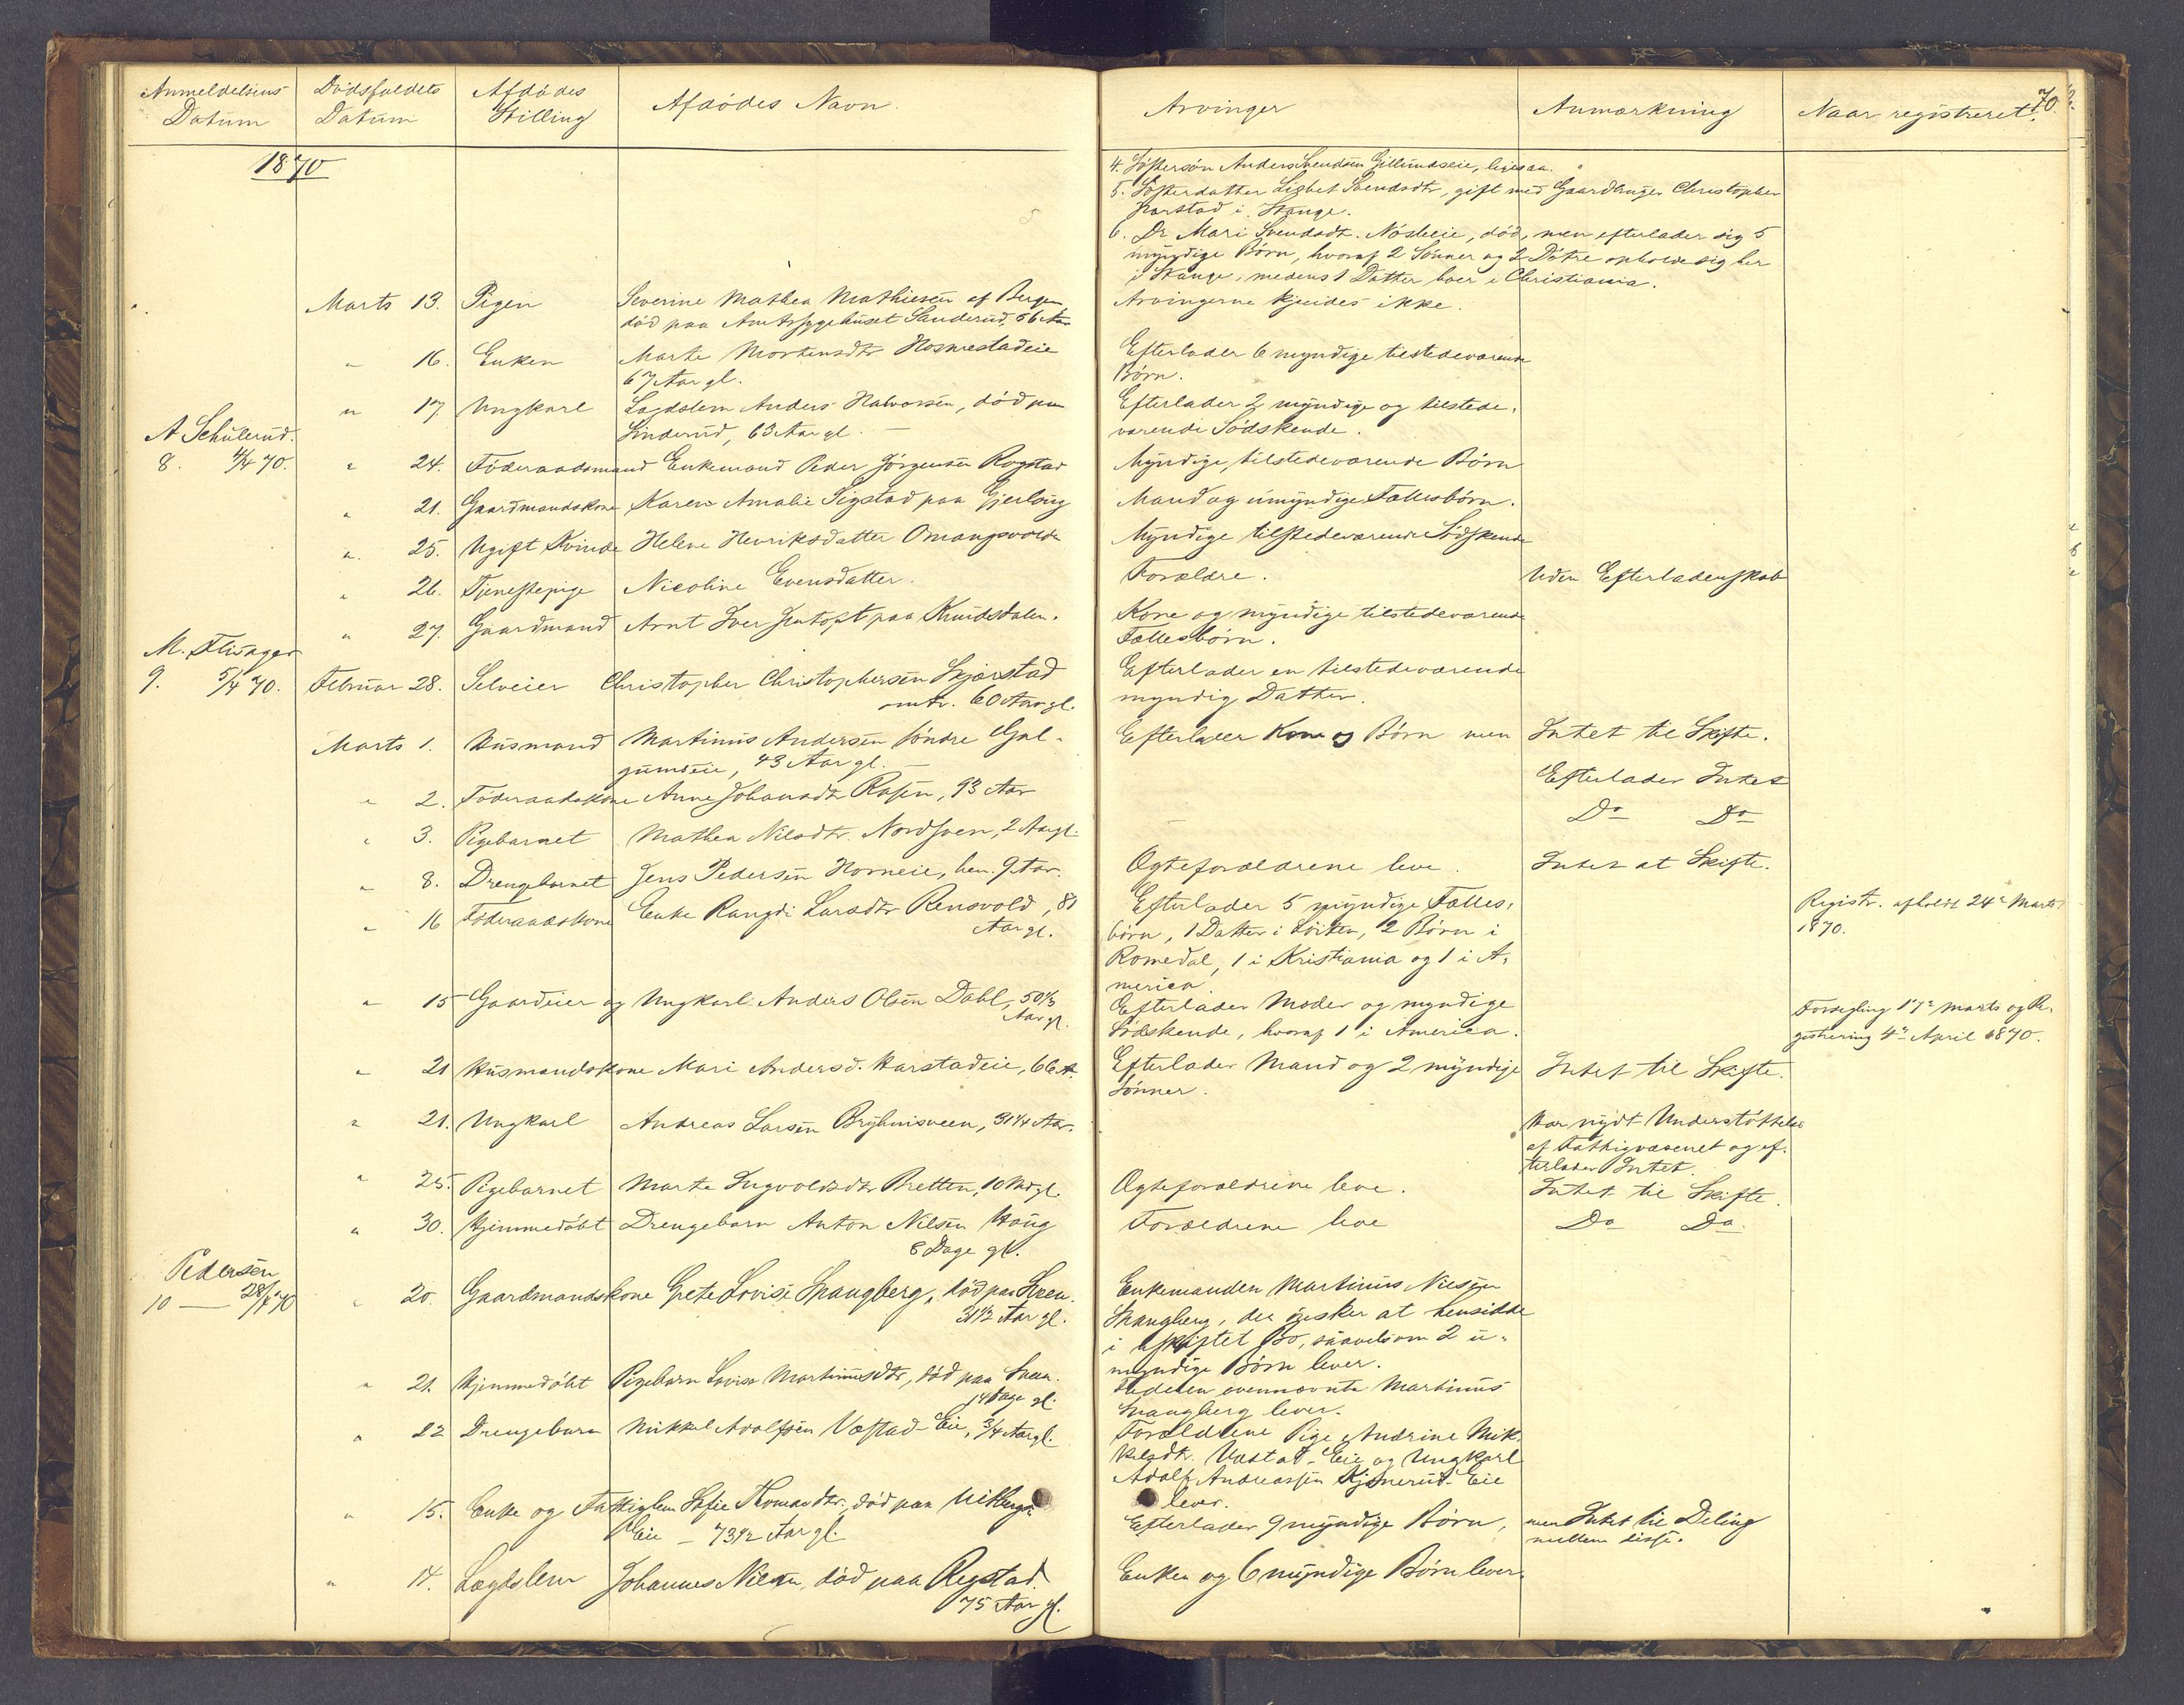 Anmeldelsens Datum
Dödsfaldets Datum
Afdödes Stilling
Afdödes Navn.
Arvinger
Anmærkning
Naar registreret.
70.
1870
4. Söstersön Anders Svendsen Gillundseie, ligesaa.
5. Sösterdatter Lisbet Svendsdtr, gift med Gaardbruger Christopher
Harstad i Stange.
6. Do Mari Svendsdtr. Nösteie, död, men efterlader sig 5
myndige Börn, hvoraf 2 Sönner og 2 Dötre opholde sig her
i Stange, medens 1 Datter boer i Christiania.
Marts 13. Pigen Severine Mathea Mathiesen af Bergen Arvingerne kjendes ikke.
död paa Amtssygehuset Sanderud, 56 Aar
" 16. Enken Marte Mortensdtr Hosmestadeie Efterlader 6 myndige tilstedeværende
67 Aar gl. Börn.
" 17. Ungkarl Lægdslem Anders Halvorsen, död paa Efterlader 2 myndige og tilstede-
Linderud, 63 Aar gl. — værende Södskende.
A Schulerud.
8. 4/4 70. " 24. Föderaadsmand Enkemand Peder Jörgensen Rogstad Myndige, tilstedeværende Börn
" 21. Gaardmandskone Karen Amalie Sigstad paa Gjerlug Mand og umyndige Fællesbörn.
" 25. Ugift Kvinde Helene Henriksdatter Omangsvolden Myndige tilstedeværende Södskende
" 26. Tjenestepige Nicoline Evensdatter. Forældre. Uden Efterladenskab
" 27. Gaardmand Arnt Iver Jentoft paa Knudsdalen. Kone og myndige tilstedeværende
Fællesbörn.
M. Flisager
9. 5/4 70. Februar 28. Selveier Christopher Christophersen Skjærstad Efterlader en tilstedeværende
omtr. 60 Aar gl. myndig Datter.
Marts 1. Husmand Martinus Andersen söndre Gal- Efterlader Kone og Börn men Intet til Skifte.
gumseie, 43 Aar gl. —
" 2. Föderaadskone Anne Johansdtr Rosen, 93 Aar Efterlader Intet
" 3. Pigebarnet Mathea Nilsdtr. Nordsveen, 2 Aar gl. Do Do
" 8. Drengebarnet Jens Pedersen Horneie, hen. 9 Aar. Ægteforældrene leve. Intet at Skifte.
" 16 Föderaadskone Enke Rangdi Larsdtr Rensvold, 81 Efterlader 5 myndige Fælles- Registr. afholdt 24e Marts
Aar gl. börn, 1 Datter i Löiten, 2 Börn i 1870.
Romedal, 1 i Kristiania og 1 i A-
merica.
" 15 Gaardeier og Ungkarl Anders Olsen Dahl, 50 1/3 Efterlader Moder og myndige Forsegling 17e Marts og Re-
Aar gl. Södskende, hvoraf 1 i America. gistrering 4e April 1870.
" 21 Husmandskone Mari Andersd. Harstadeie, 66 A. Efterlader Mand og 2 myndige Intet til Skifte.
Sönner.
" 21. Ungkarl Andreas Larsen Bryhnisveen, 31 1/4 Aar. Har nydt Understöttelse
af Fattigvæsenet og ef-
terlader Intet.
" 25. Pigebarnet Marte Ingvoldsdtr Bretten, 10 Md gl. Ægteforældrene leve. Intet til Skifte.
" 30. Hjemmedöbt Drengebarn Anton Nilsen Haug Forældrene leve Do Do.
8 Dage gl.
Pedersen
10 — 28/4 70 " 20. Gaardmandskone Grete Lovise Spangberg, död paa Sveen. Enkemanden Martinus Nielsen
31 1/2 Aar gl. Spangberg, der önsker at hensidde
i uskiftet Bo, saavelsom 2 u-
myndige Börn lever.
" 21. Hjemmedöbt Pigebarn Lovise Martinusdtr, död paa Sveen. Faderen ovennævnte Martinus
14 Dage gl. Spangberg lever.
" 22 Drengebarn Mikkel Adolfsen Vestad-Eie, 3/4 Aar gl. Forældrene Pige Andrine Mik-
kelsdtr. Vestad-Eie og Ungkarl
Adolf Andreassen Kjonerud-Eie
lever.
" 15. Enke og Fattiglem Sofie Thomasdtr, död paa Efterlader 9 myndige Börn, men Intet til Deling
Eie — 73 1/2 Aar gl. mellem disse.
" 14. Lægdslem Johannes Nilsen, död paa Rogstad. Enken og 6 myndige Börn lever.
75 Aar gl.